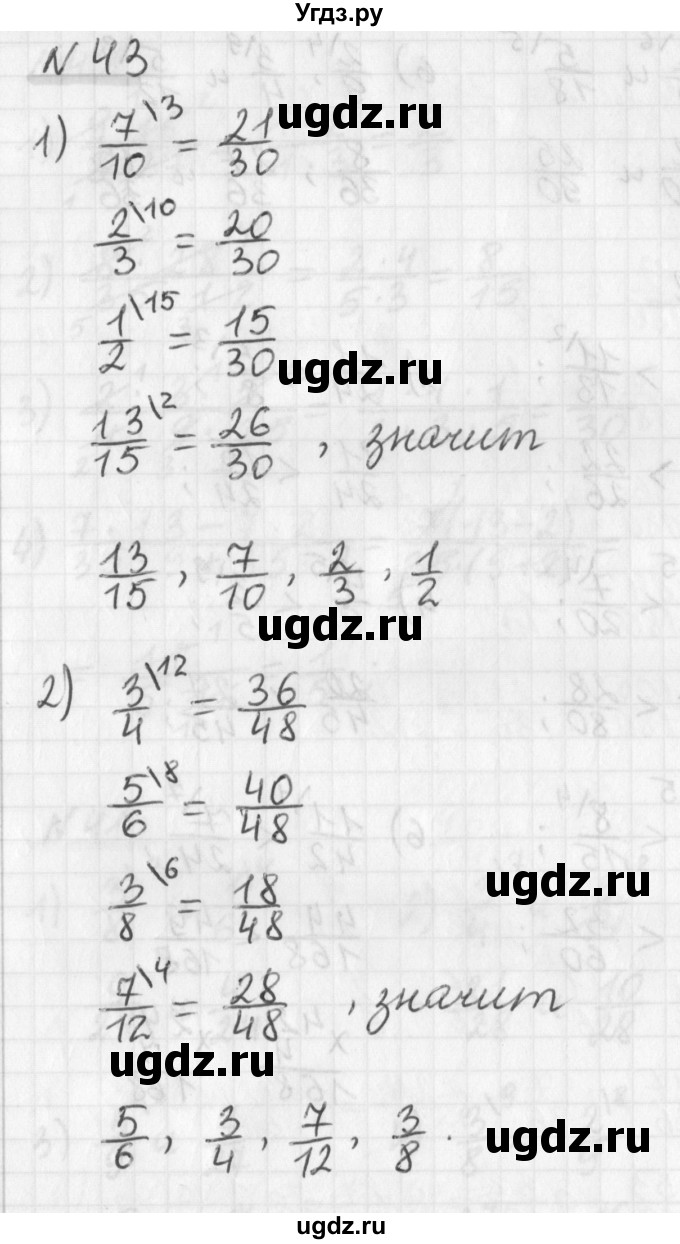 Угдз.ру
N 43
ugdz.ru
1) 7/10 \3 = 21/30
2/3 \10 = 20/30
1/2 \15 = 15/30
ugdz.ru
13/15 \2 = 26/30 , значит
13/15 , 7/10 , 2/3 , 1/2
ugdz.ru
2) 3/4 \12 = 36/48
5/6 \8 = 40/48
ugdz.ru
3/8 \6 = 18/48
7/12 \4 = 28/48 , значит
ugdz.ru
5/6 , 3/4 , 7/12 , 3/8 .
ugdz.ru
ugdz.ru